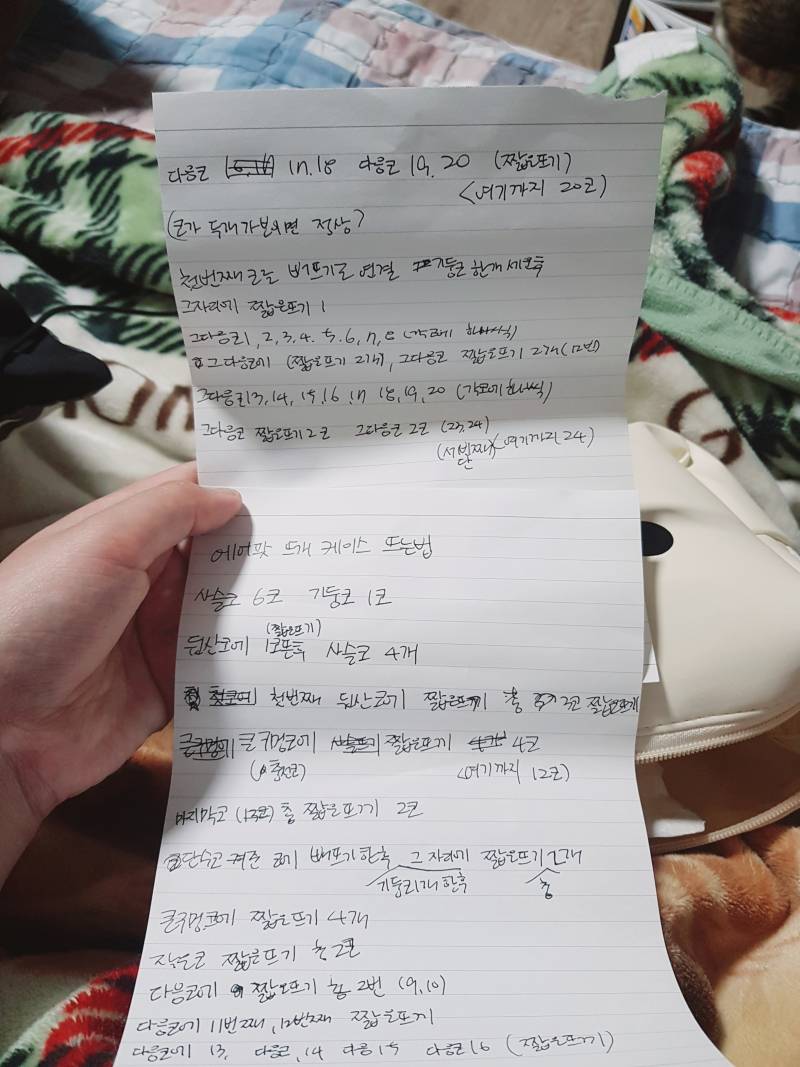 다음코 17, 18 다음코 19, 20 (짧은뜨기)
<여기까지 20코>
(코가 두개가 보이면 정상)
첫번째 코는 빼뜨기로 연결 기둥코 한개 세운후
그자리에 짧은뜨기 1
그다음코 1, 2, 3, 4, 5, 6, 7, 8 (각코에 하나씩)
그다음코에 (짧은뜨기 2개), 그다음코 짧은뜨기 2개 (12번)
그다음코 13, 14, 15, 16, 17, 18, 19, 20 (각코에 하나씩)
그다음코 짧은뜨기 2코 그다음코 2코 (23, 24)
(세번째단) 여기까지 24)
에어팟 뜨개 케이스 뜨는법
사슬코 6코 기둥코 1코
(짧은뜨기)
뒷산코에 1코뜬후 사슬코 4개
첫번째 뒷산코에 짧은뜨기 총 2코 짧은뜨기
큰구멍코에 짧은뜨기 4코
<여기까지 12코>
마지막코 (13코) 총 짧은뜨기 2코
코에 빼뜨기 한후 그 자리에 짧은뜨기 2개
한후 총
큰구멍코에 짧은뜨기 4개
작은코 짧은뜨기 총 2코
다음코에 짧은뜨기 총 2번 (9, 10)
다음코에 11번째, 12번째 짧은뜨기
다음코에 13, 다음코, 14 다음 15 다음코 16 (짧은뜨기)